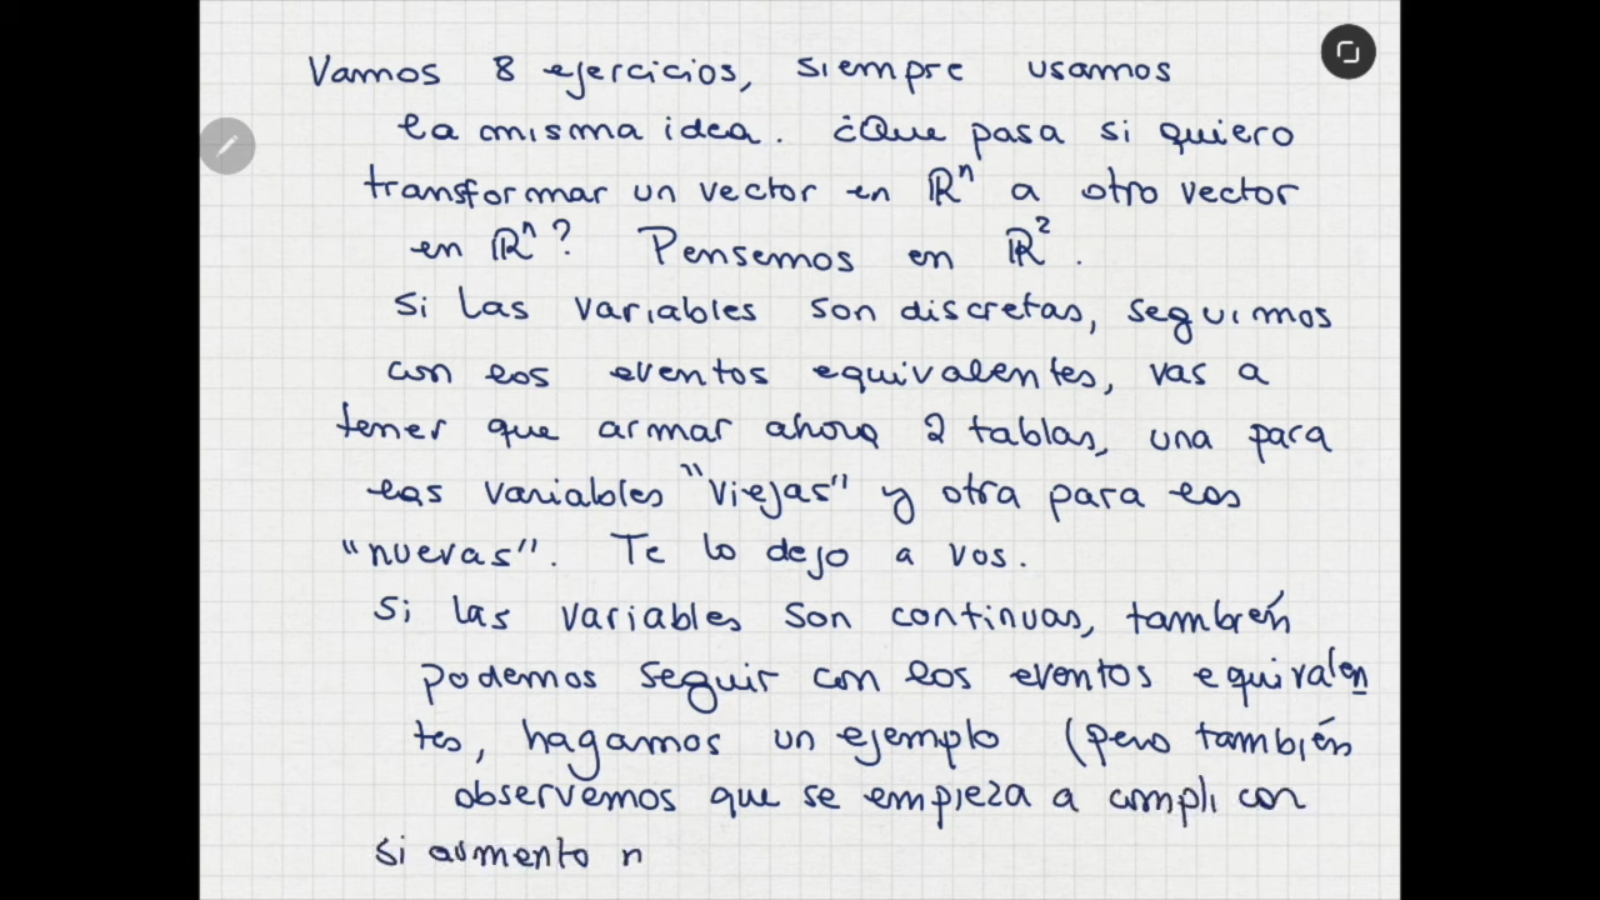 Vamos 8 ejercicios, siempre usamos
la misma idea. ¿Que pasa si quiero
transformar un vector en ℝⁿ a otro vector
en ℝⁿ? Pensemos en ℝ².
Si las variables son discretas, seguimos
con los eventos equivalentes, vas a
tener que armar ahora 2 tablas, una para
las variables "viejas" y otra para las
"nuevas". Te lo dejo a vos.
Si las variables son continuas, también
podemos seguir con los eventos equivalen
tes, hagamos un ejemplo (pero también
observemos que se empieza a compli car
si aumento n